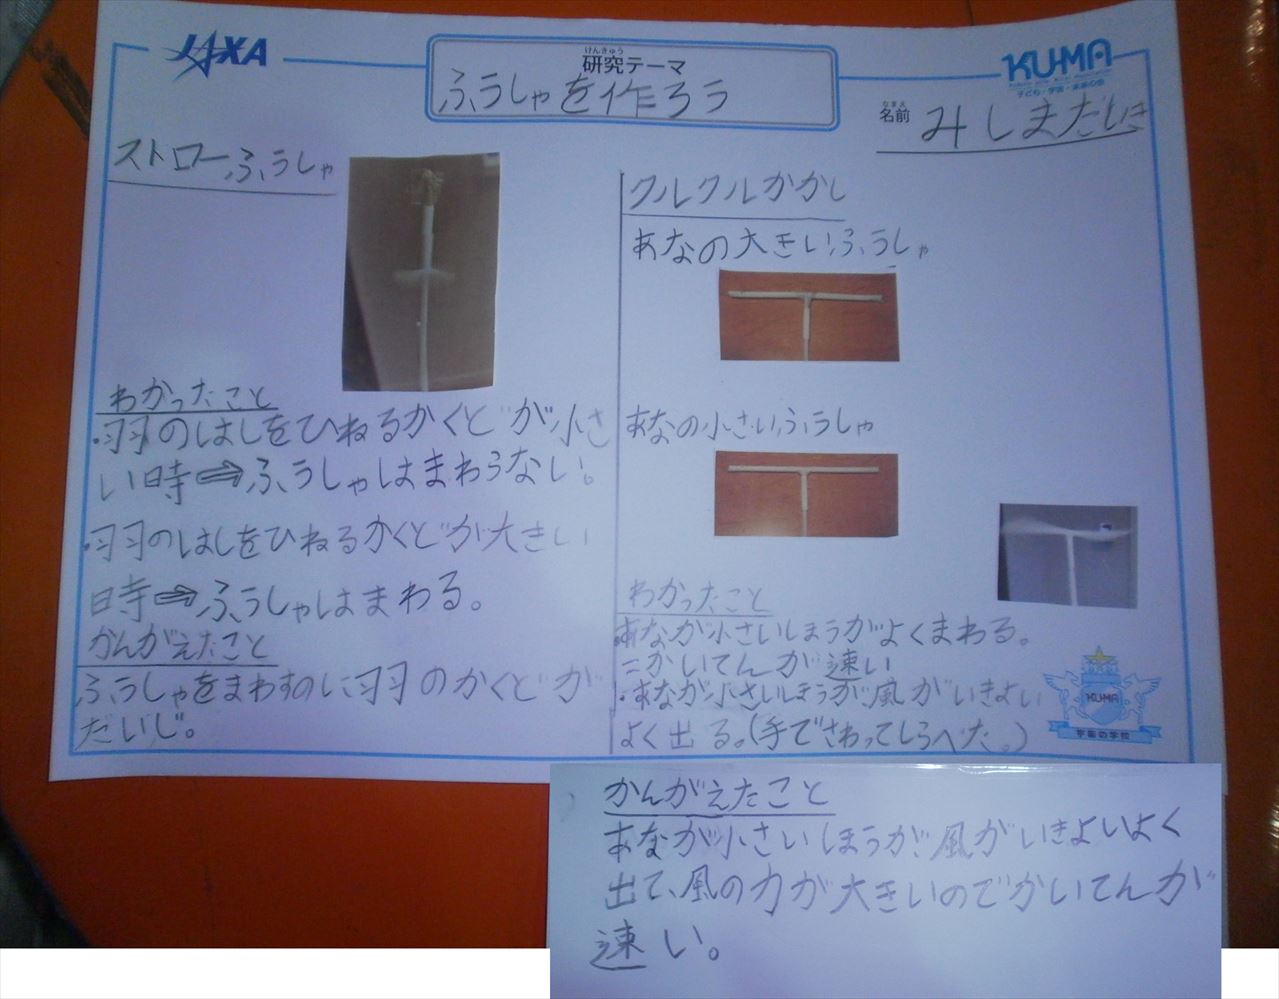 JAXA
けんきゅう
研究テーマ
ふうしゃを作ろう
KU-MA
子ども・宇宙・未来の会
なまえ
名前
みしまだいき
ストローふうしゃ
わかったこと
・羽のはしをひねるかくどが小さ
い時⇒ふうしゃはまわらない。
・羽のはしをひねるかくどが大きい
時⇒ふうしゃはまわる。
かんがえたこと
ふうしゃをまわすのに羽のかくどが
だいじ。
クルクルかかし
あなの大きいふうしゃ
あなの小さいふうしゃ
わかったこと
・あなが小さいほうがよくまわる。
=かいてんが速い
・あなが小さいほうが風がいきよい
よく出る。(手でさわってしらべた。)
KU-MA
宇宙の学校
かんがえたこと
あなが小さいほうが風がいきよいよく
出て、風の力が大きいのでかいてんが
速い。